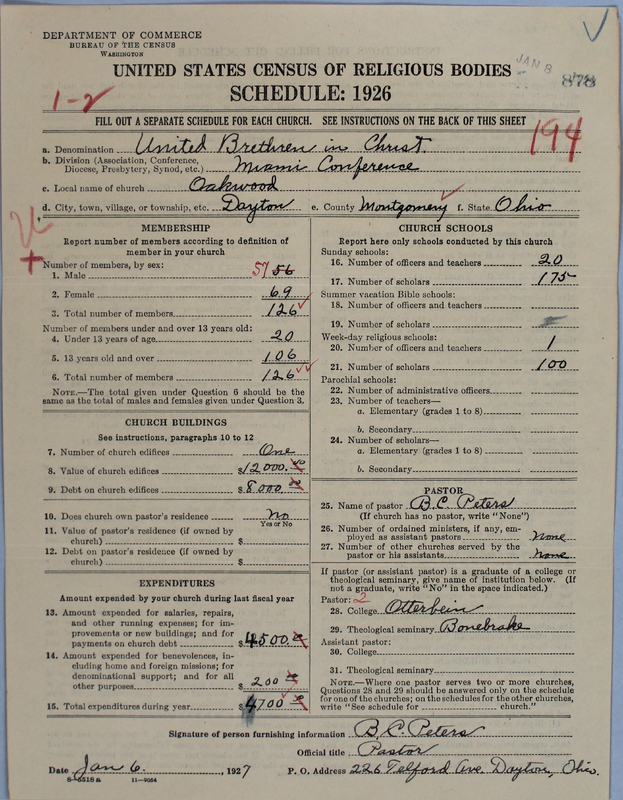 DEPARTMENT OF COMMERCE
BUREAU OF THE CENSUS
WASHINGTON
JAN 8
878
UNITED STATES CENSUS OF RELIGIOUS BODIES
1-2
SCHEDULE: 1926
FILL OUT A SEPARATE SCHEDULE FOR EACH CHURCH. SEE INSTRUCTIONS ON THE BACK OF THIS SHEET
194
a. Denomination United Brethren in Christ.
b. Division (Association, Conference, Diocese, Presbytery, Synod, etc.) Miami Conference
c. Local name of church Oakwood
d. City, town, village, or township, etc. Dayton e. County Montgomery f. State Ohio
MEMBERSHIP
Report number of members according to definition of
member in your church
Number of members, by sex:
1. Male 57 56
2. Female 69
3. Total number of members 126
Number of members under and over 13 years old:
4. Under 13 years of age 20
5. 13 years old and over 106
6. Total number of members 126
NOTE.—The total given under Question 6 should be
same as the total of males and females given under Question 3.
CHURCH BUILDINGS
See instructions, paragraphs 10 to 12
7. Number of church edifices One
8. Value of church edifices $12000.00
9. Debt on church edifices $8000.00
10. Does church own pastor's residence No
Yes or No
11. Value of pastor's residence (if owned by
church) $
12. Debt on pastor's residence (if owned by
church) $
EXPENDITURES
Amount expended by your church during last fiscal year
13. Amount expended for salaries, repairs,
and other running expenses; for im-
provements or new buildings; and for
payments on church debt $4500.00
14. Amount expended for benevolences, in-
cluding home and foreign missions; for
denominational support; and for all
other purposes $200.00
15. Total expenditures during year $4700.00
CHURCH SCHOOLS
Report here only schools conducted by this church
Sunday schools:
16. Number of officers and teachers 20
17. Number of scholars 175
Summer vacation Bible schools:
18. Number of officers and teachers
19. Number of scholars
Week-day religious schools:
20. Number of officers and teachers 1
21. Number of scholars 100
Parochial schools:
22. Number of administrative officers
23. Number of teachers—
a. Elementary (grades 1 to 8)
b. Secondary
24. Number of scholars—
a. Elementary (grades 1 to 8)
b. Secondary
PASTOR
25. Name of pastor B.C. Peters
(If church has no pastor, write "None")
26. Number of ordained ministers, if any, em-
ployed as assistant pastors none
27. Number of other churches served by the
pastor or his assistants none
If pastor (or assistant pastor) is a graduate of a college or
theological seminary, give name of institution below. (If
not a graduate, write "No" in the space indicated.)
Pastor: 2
28. College Otterbein
29. Theological seminary Bonebrake
Assistant pastor:
30. College
31. Theological seminary
NOTE.—Where one pastor serves two or more churches,
Questions 28 and 29 should be answered only on the schedule
for one of the churches; on the schedules for the other churches,
write "See schedule for church."
Signature of person furnishing information B.C. Peters
Official title Pastor
Date Jan 6., 1927 P. O. Address 226 Telford Ave. Dayton, Ohio.
8-5518a 11-9064